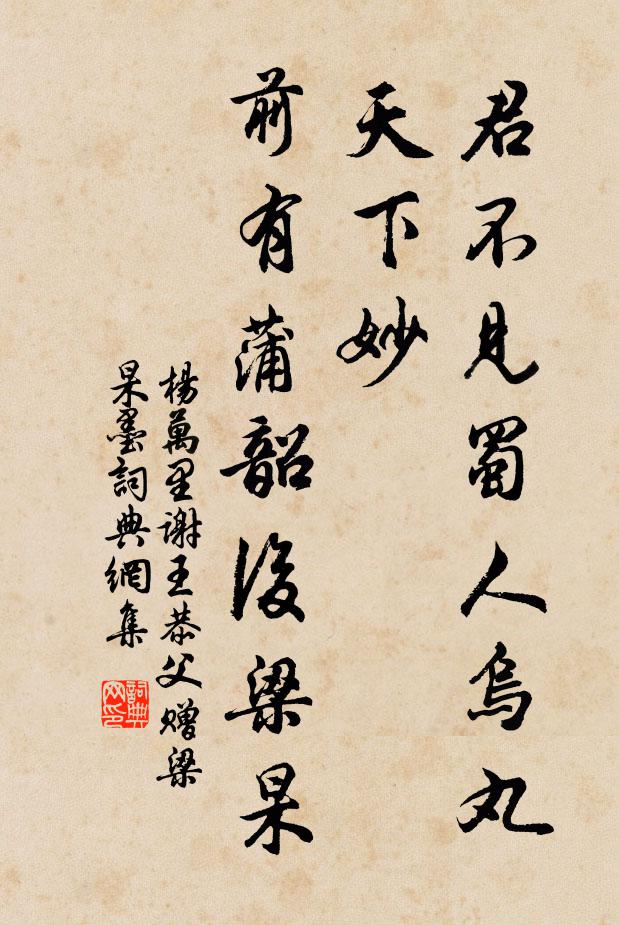 君不見蜀人烏丸
天下妙
前有蒲韶後梁杲
楊萬里謝王恭父贈梁
杲墨詞典網集
詞典
网印